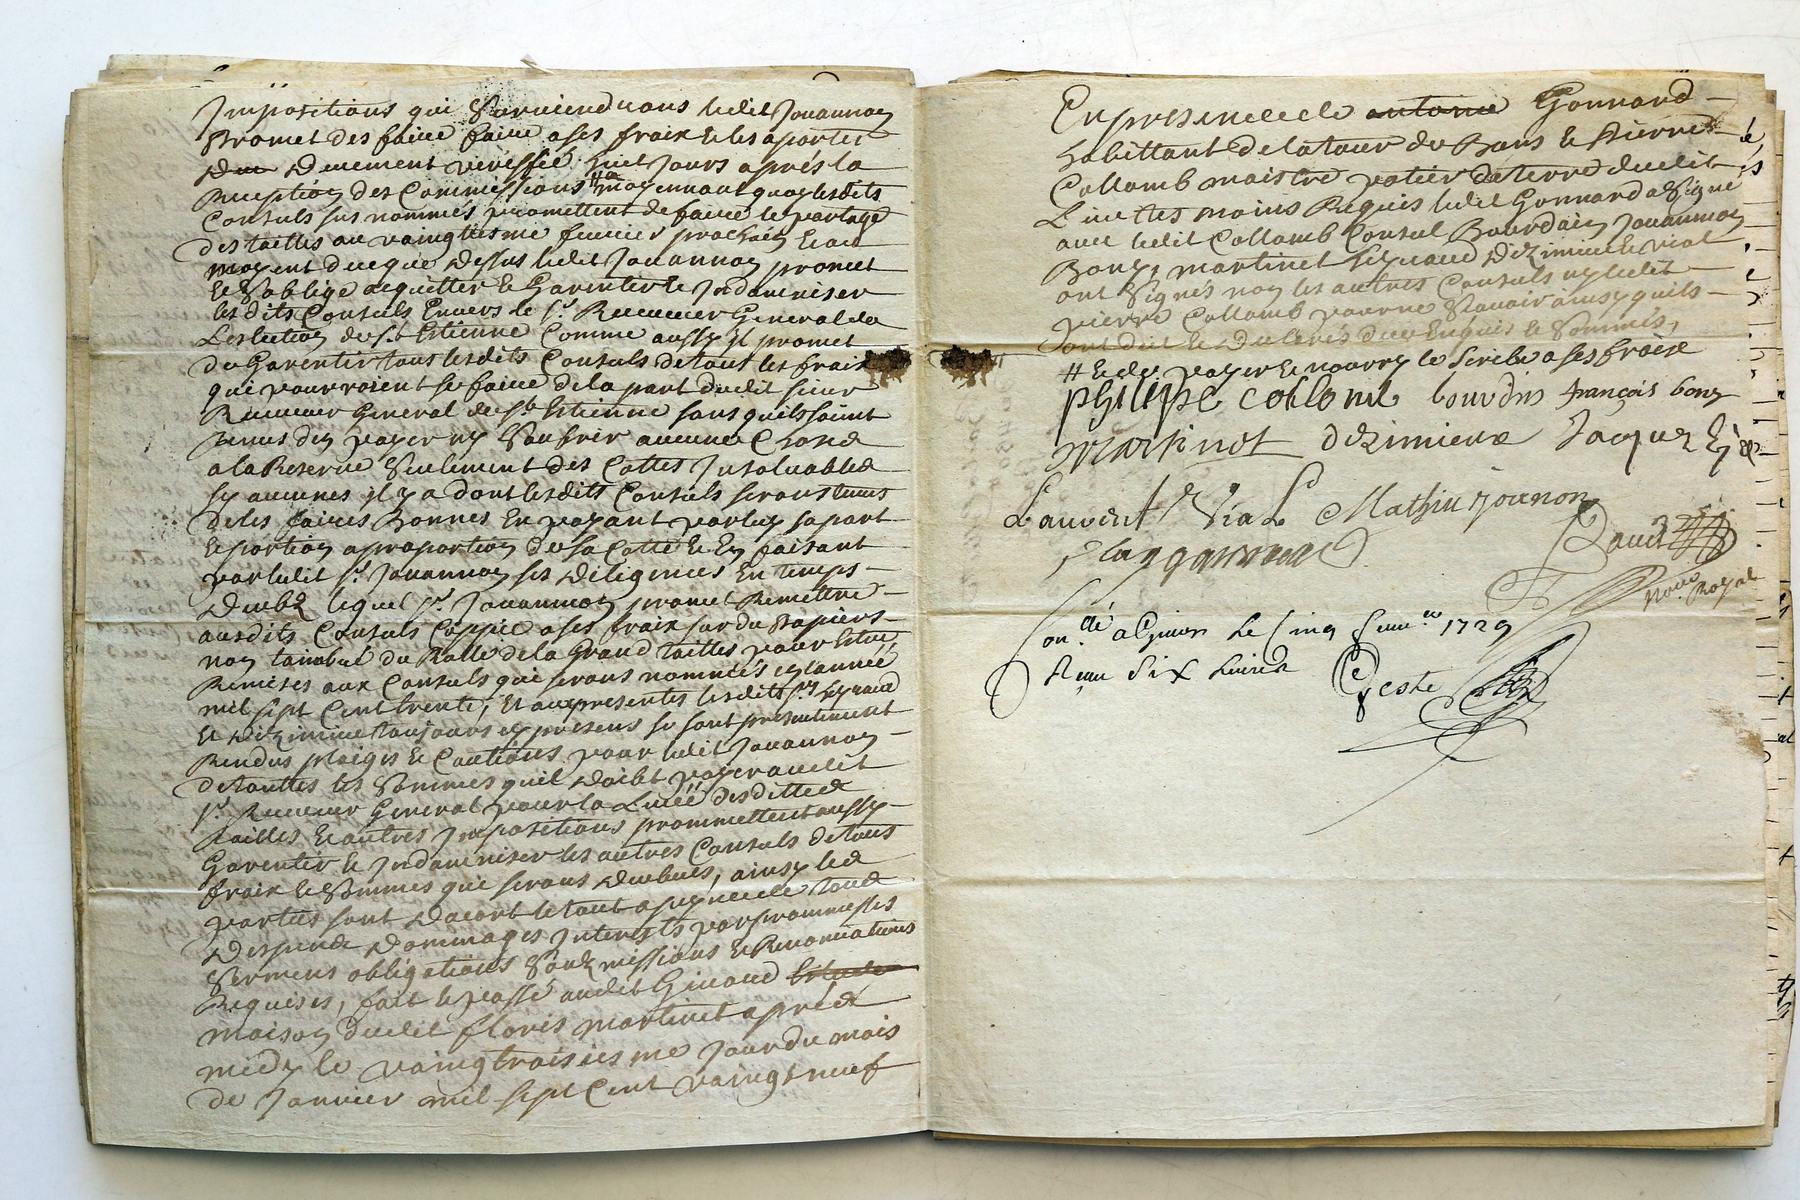 Impositions qui surviendrons ledit Jouannon
Promet des faire faire a ses fraix & les aporter
Duement veriffié huit Jours aprés la
Reception des Commissions # moyennant quoy lesdits
Consuls sus nommés promettent de faire le partage
des tailles au vaingtiesme fevrier prochain & au
moyent de ce que dessus ledit Jouannon promet
& s'oblige acquitter & Garentir & Indamniser
lesdits Consuls Envers le Sr Receveur General de
L'eslection de St Estienne Comme aussy il promet
de Garentir tous lesdits Consuls de tous les fraix
qui pourroient se faire de la part dudit sieur
Receveur General de St Estienne sans quils soint
tenus den payer ny soufrir aucune Chose
a la Reserve seulement des Cottes Insoluables
sy aucunes il y a dont lesdits Consuls serons tenus
de les faires Bonnes En payant par luy sa part
& portion a proportion de sa Cotte & En faisant
par ledit Sr Jouannon ses diligences En temps
deubz lequel Sr Jouannon promet Remettre
ausdits Consuls Coppie a ses fraix sur du Papiers
non timbré du Rolle de la Grand tailles pour Estre
Remises aux Consuls qui serons nommés en lannée
mil sept Cent trente, Et aux presentes lesdits Srs
Et dezimieu toujours y presens se sont presentement
Rendus plaiges & Cautions pour ledit Jouannon
de touttes les sommes quil doibt payer audit
Sr Receveur General pour la Levée desdittes
tailles & autres Impositions promettent aussy
Garentir & Indamniser les autres Consuls de tous
fraix & sommes qui serons deubues, ainsy les
parties sont dacort le tout a peyne de tous
Despens dommages Interests par promesses
serment obligations soubzmissions & Renonciations
Requises, fait & passé audit Giraud
maison dudit floris martinet aprés
midy le vaingtroisiesme Jour du mois
de Janvier mil sept Cent vaingt neuf
En presence de antoine Gonnard
habittant de la tour de Bans & Pierre
Collomb maistre potier de terre dudit
Lieu tesmoins Requis ledit Gonnard a signé
avec ledit Collomb Consul Bourdain Jouannon
Bony, martinet dezimieu & vial
ont signés non les autres Consuls ny ledit
pierre Collomb pour ne scavoir ainsy quils
ont dit & declerés de ce Enquis & sommés,
# & de payer & nourry le scribe a ses fraix
philipe collomb bourdin françois bony
Martinet dezimieux Jacque
Laurent Vial Mathieu Jouanon
Notre Royal
Conlé a Givors Le Cinq fevrier 1729
Receu Six livres